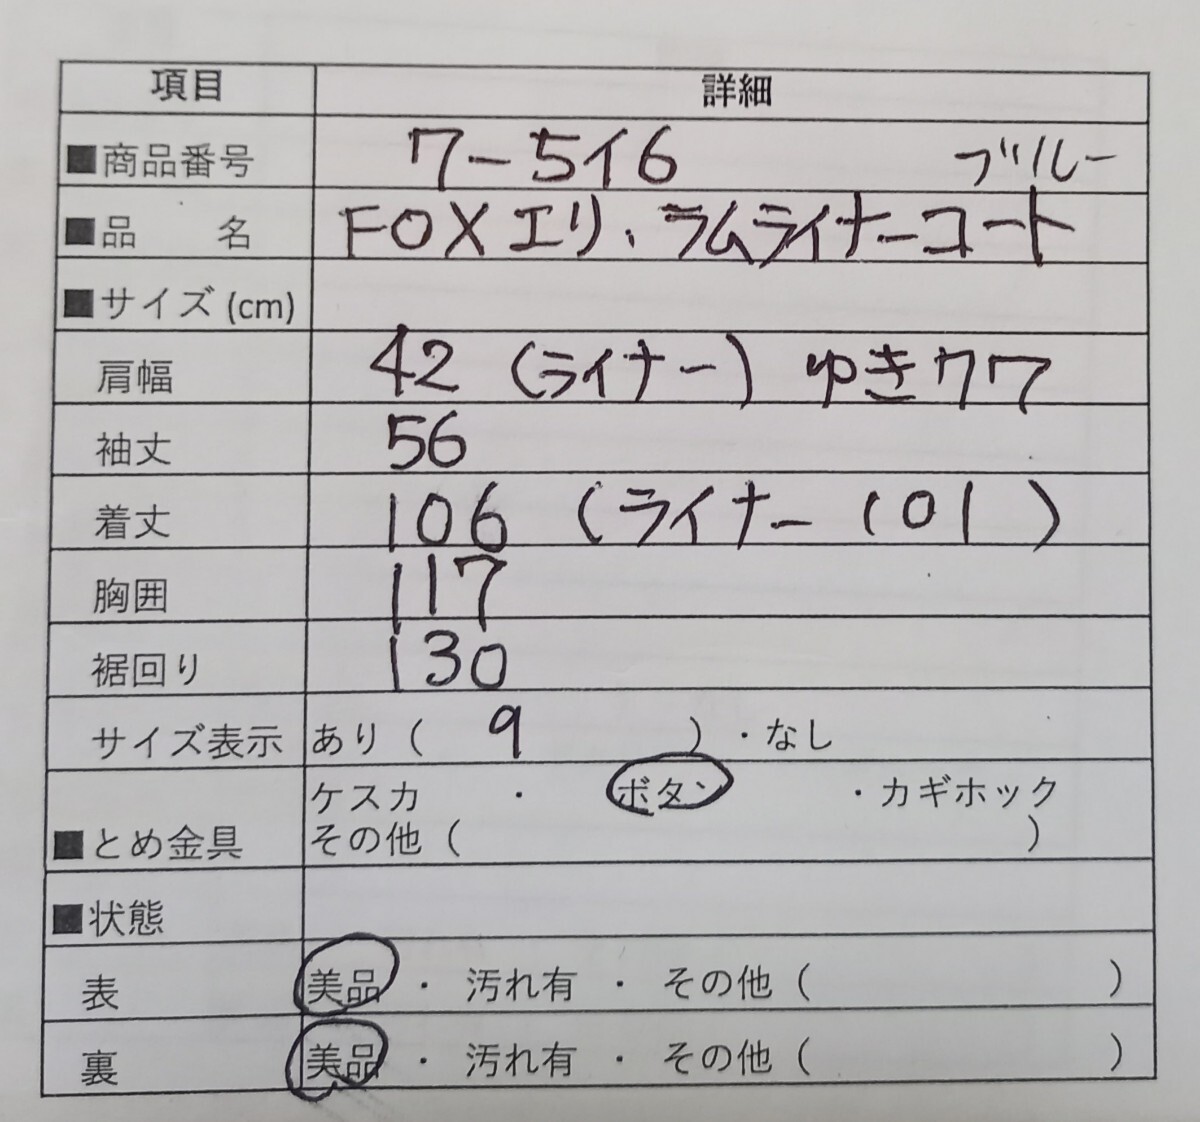 項目 詳細
■商品番号 7-516 ブルー
■品 名 FOXエリ、ラムライナーコート
■サイズ(cm)
肩幅 42 (ライナー) ゆき77
袖丈 56
着丈 106 (ライナー 101)
胸囲 117
裾回り 130
サイズ表示 あり( 9 )・なし
ケスカ ・ ボタン ・カギホック
■とめ金具 その他( )
■状態
表 美品 ・ 汚れ有 ・ その他( )
裏 美品 ・ 汚れ有 ・ その他( )